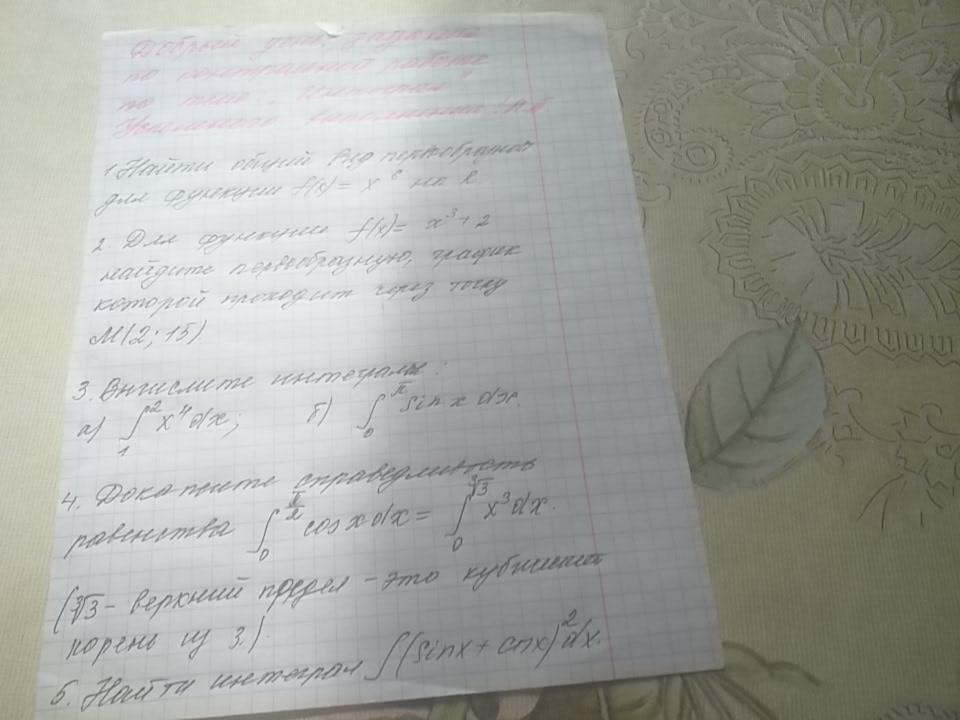 Добрый день. Задания
по контрольной работе
по теме: "Интеграл"
Успешного выполнения!
1 Найти общий вид первообразной
для функции f(x) = x⁶ на R.
2. Для функции f(x) = x³ + 2
найдите первообразную, график
которой проходит через точку
M(2; 15).
3. Вычислите интегралы:
а) ∫₁² x⁴dx; б) ∫₀^π sin x dx.
4. Докажите справедливость
равенства ∫₀^(π/2) cos x dx = ∫₀^(∛3) x³dx.
(∛3 - верхний предел - это кубический
корень из 3.)
5. Найти интеграл ∫(sinx + cosx)²dx.